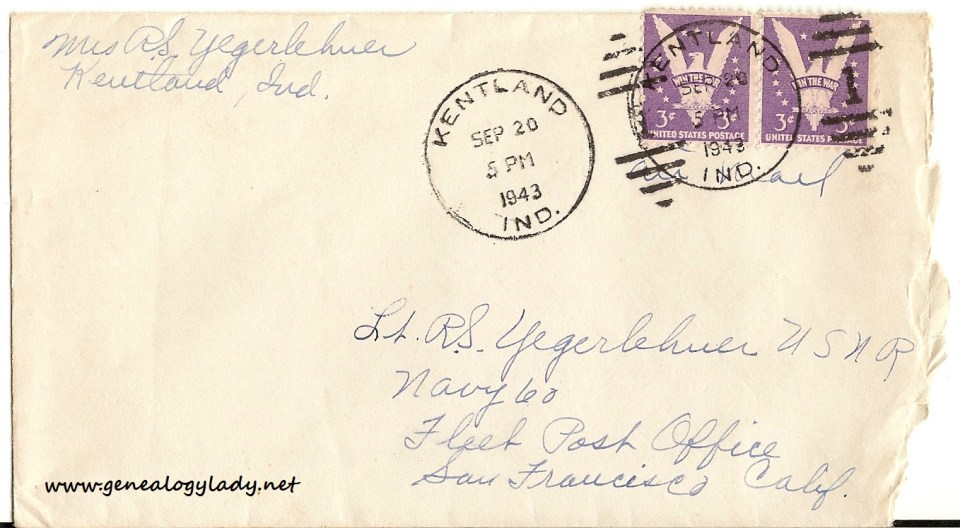 Mrs R.S. Yegerlehner
Kentland, Ind.
KENTLAND
SEP 20
5 PM
1943
IND.
KENTLAND
SEP 20
5 PM
1943
IND.
1
WIN THE WAR
3¢ 3¢
UNITED STATES POSTAGE
WIN THE WAR
3¢ 3¢
UNITED STATES POSTAGE
Air Mail
Lt. R.S. Yegerlehner USNR
Navy 60
Fleet Post Office
San Francisco Calif.
www.genealogylady.net